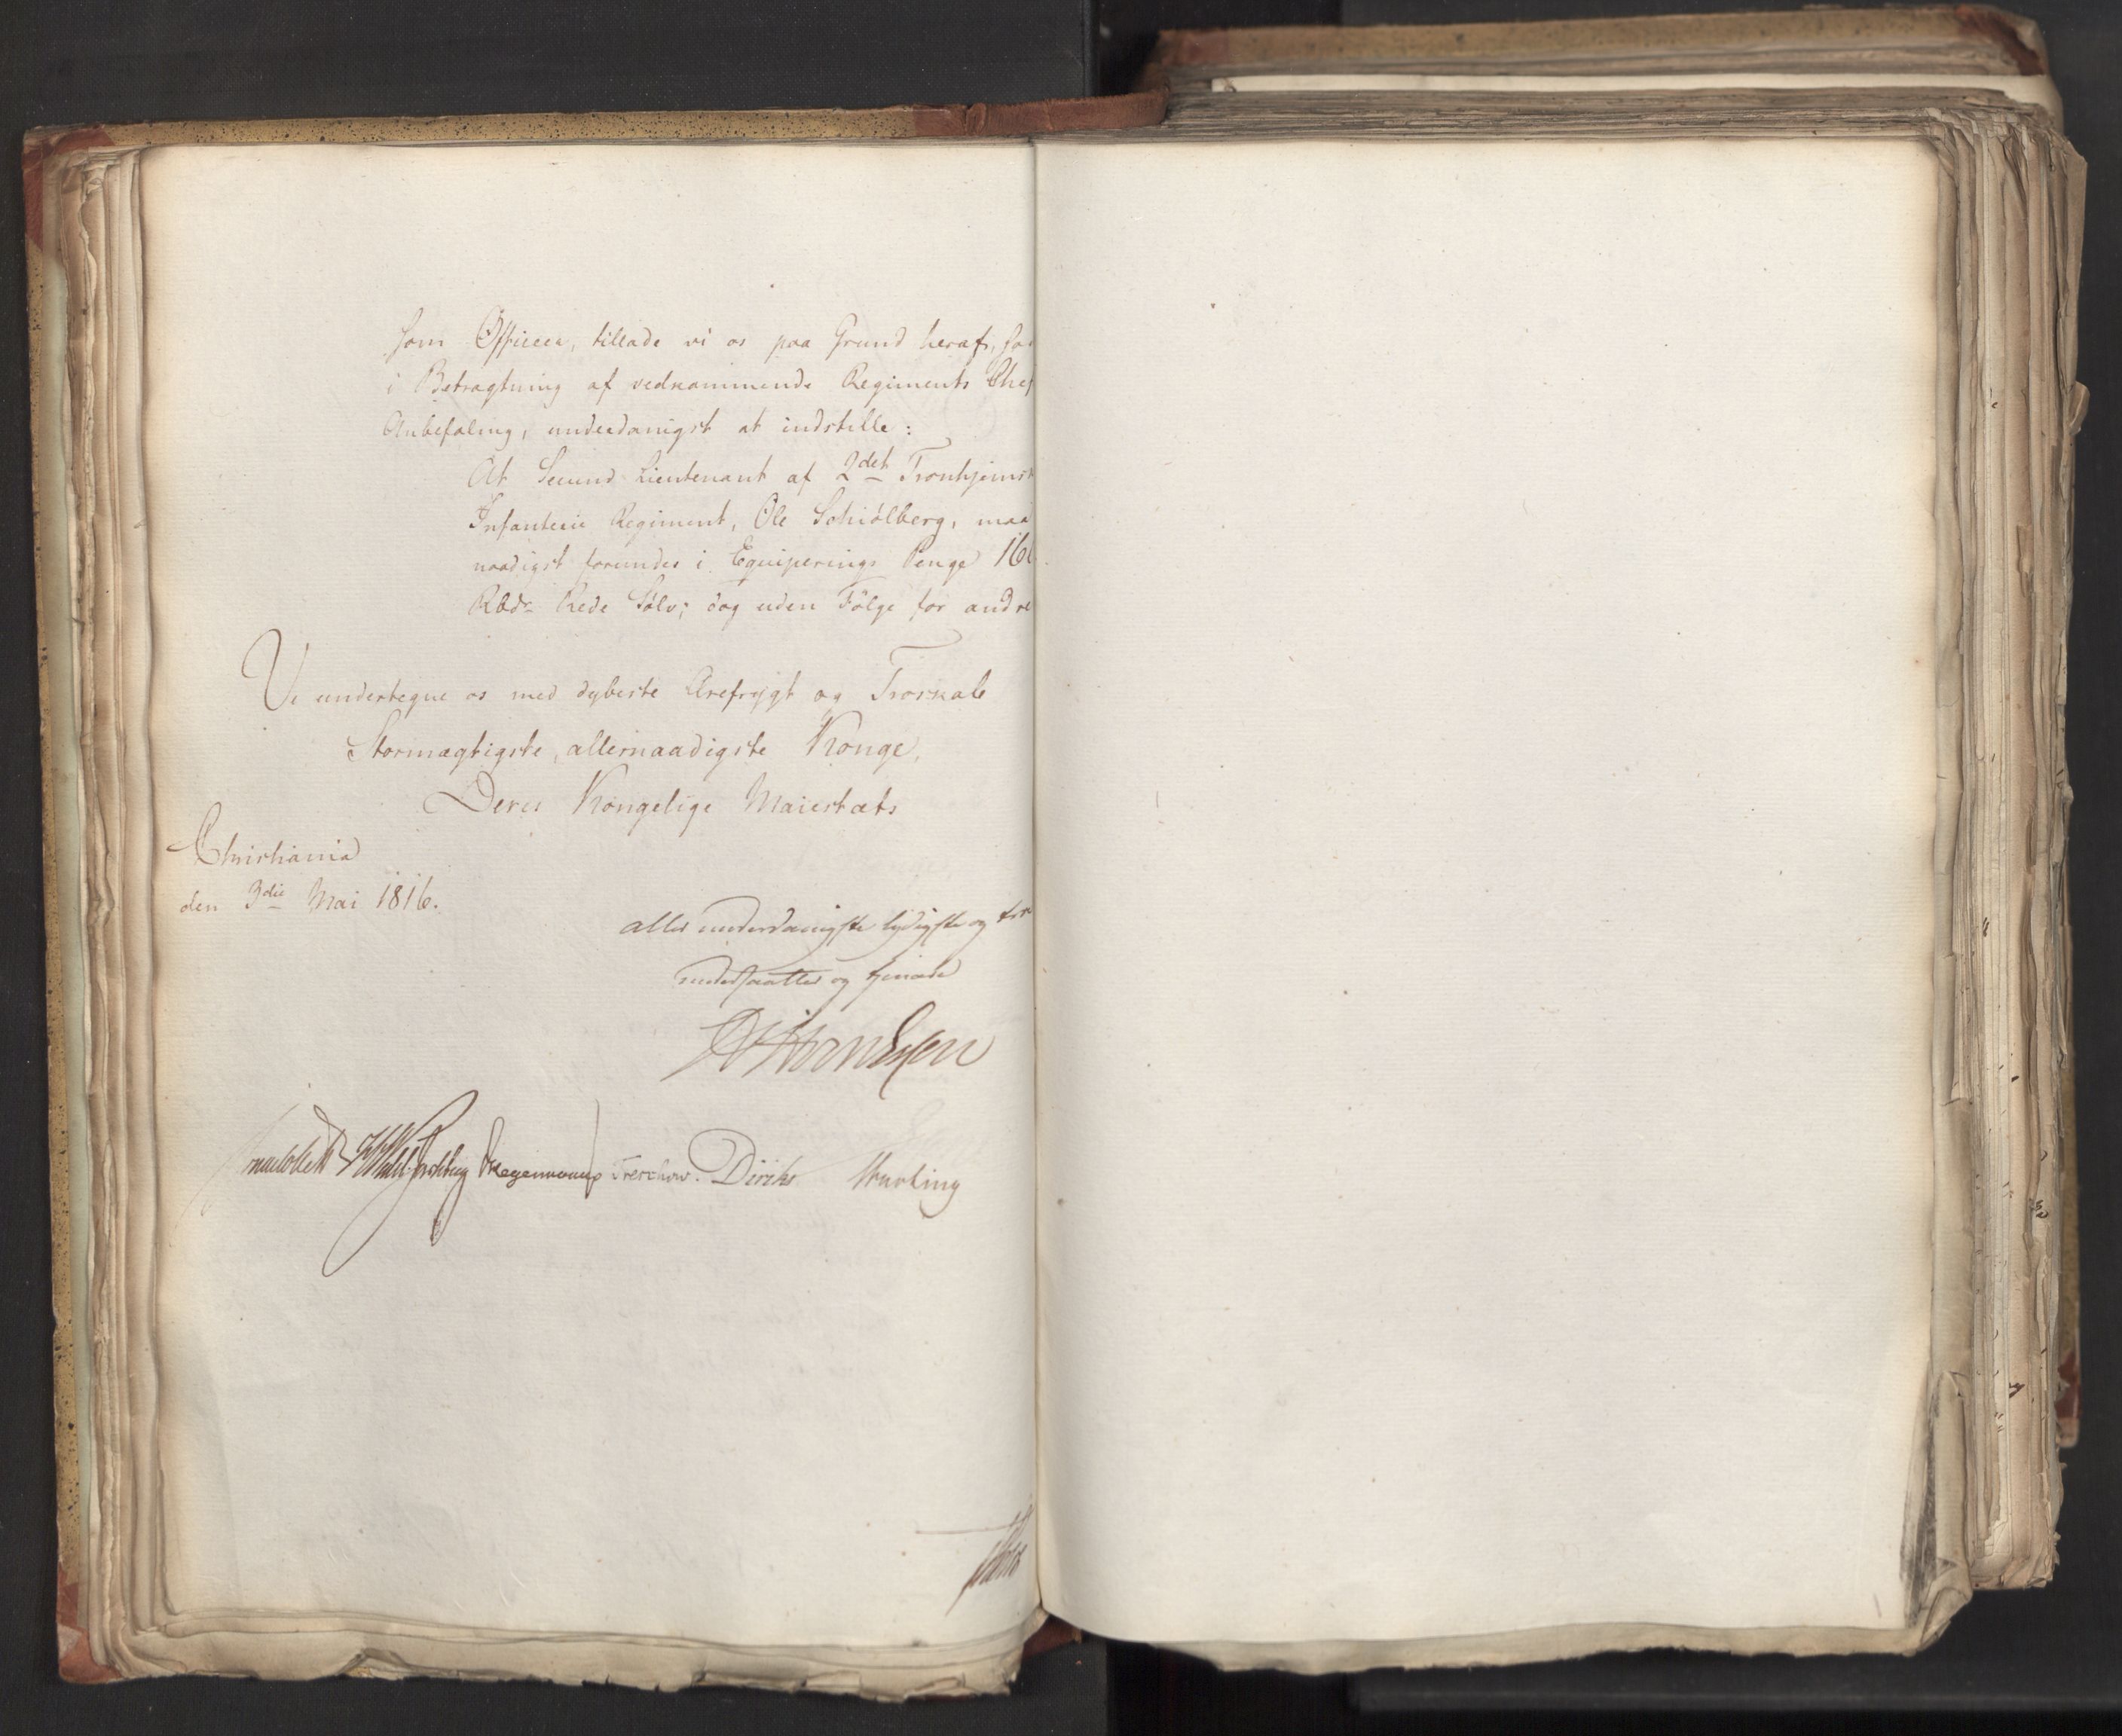 som Officeer, tillade vi os paa Grund heraf,
i Betragtning af vedkommende Regiments Chef
Anbefaling, underdanigst at indstille:
At Secund Lieutenant af 2det Tronhjemsk
Infanterie Regiment, Ole Schiølberg, maa
naadigst forundes i Equiperings Penge 16
Rbdr Rede Sølv; dog uden Følge for andre
Vi undertegne os med dybeste Ærefrygt og Troskab
Stormægtigste, allernaadigste Konge,
Deres Kongelige Maiestæts
Christiania
den 3die Mai 1816.
aller underdanigste lydigste og tro
undersaatter og tjenere
Sommerhielm Treschow. Diriks